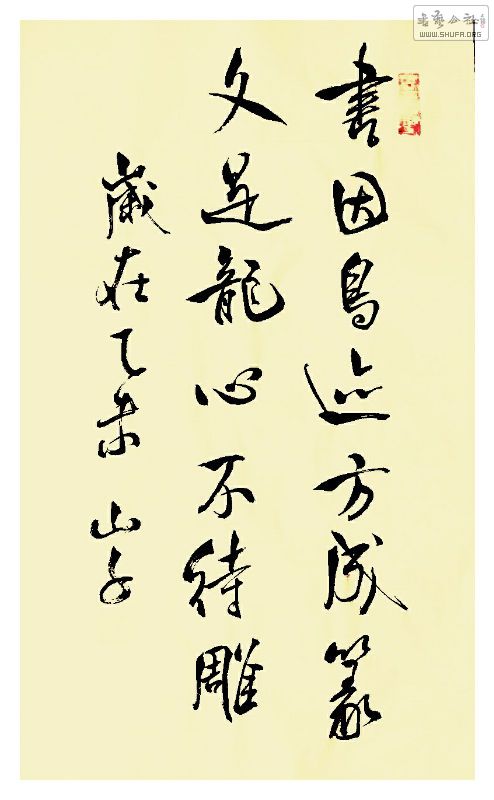 書因鳥迹方成篆
文是龍心不待雕
歲在乙未 山子
書藝公社
WWW.SHUFA.ORG